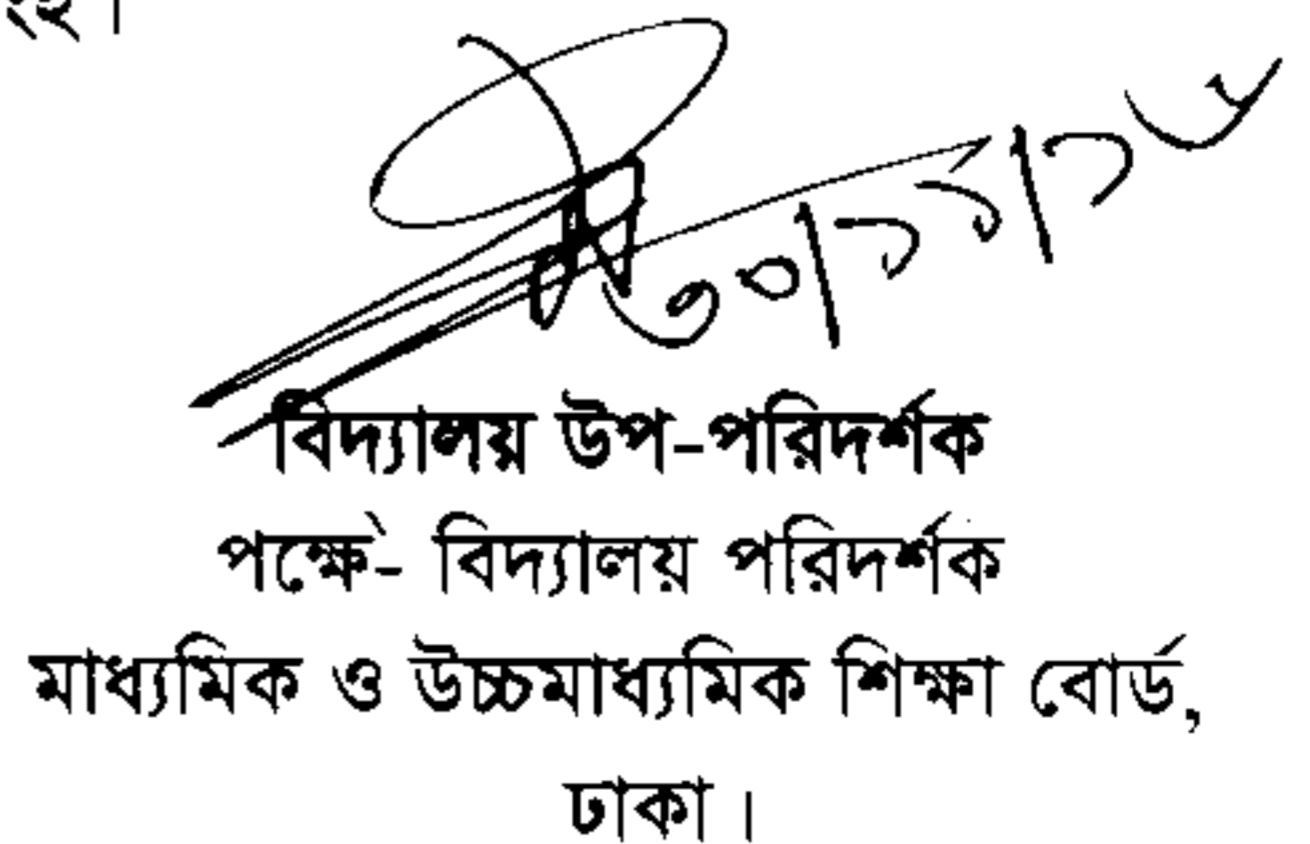 ৩০/১১/১৫
বিদ্যালয় উপ-পরিদর্শক
পক্ষে- বিদ্যালয় পরিদর্শক
মাধ্যমিক ও উচ্চমাধ্যমিক শিক্ষা বোর্ড,
ঢাকা।